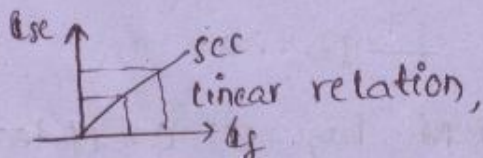 Isc
scc
linear relation,
If